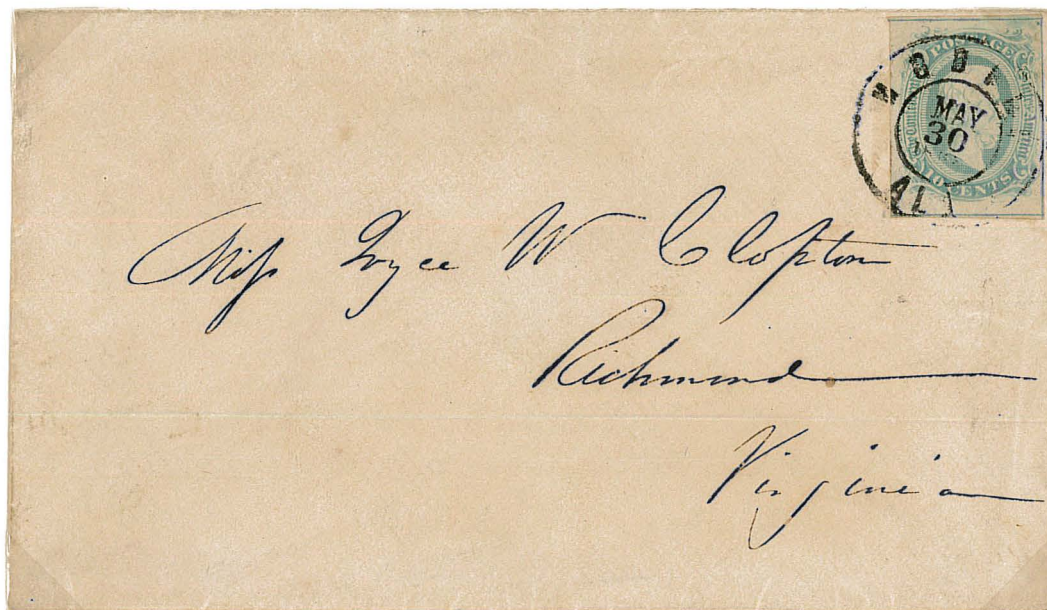 POSTAGE
MOBILE
MAY
30
ALA
10 CENTS
Miss Joyce W Clopton
Richmond
Virginia